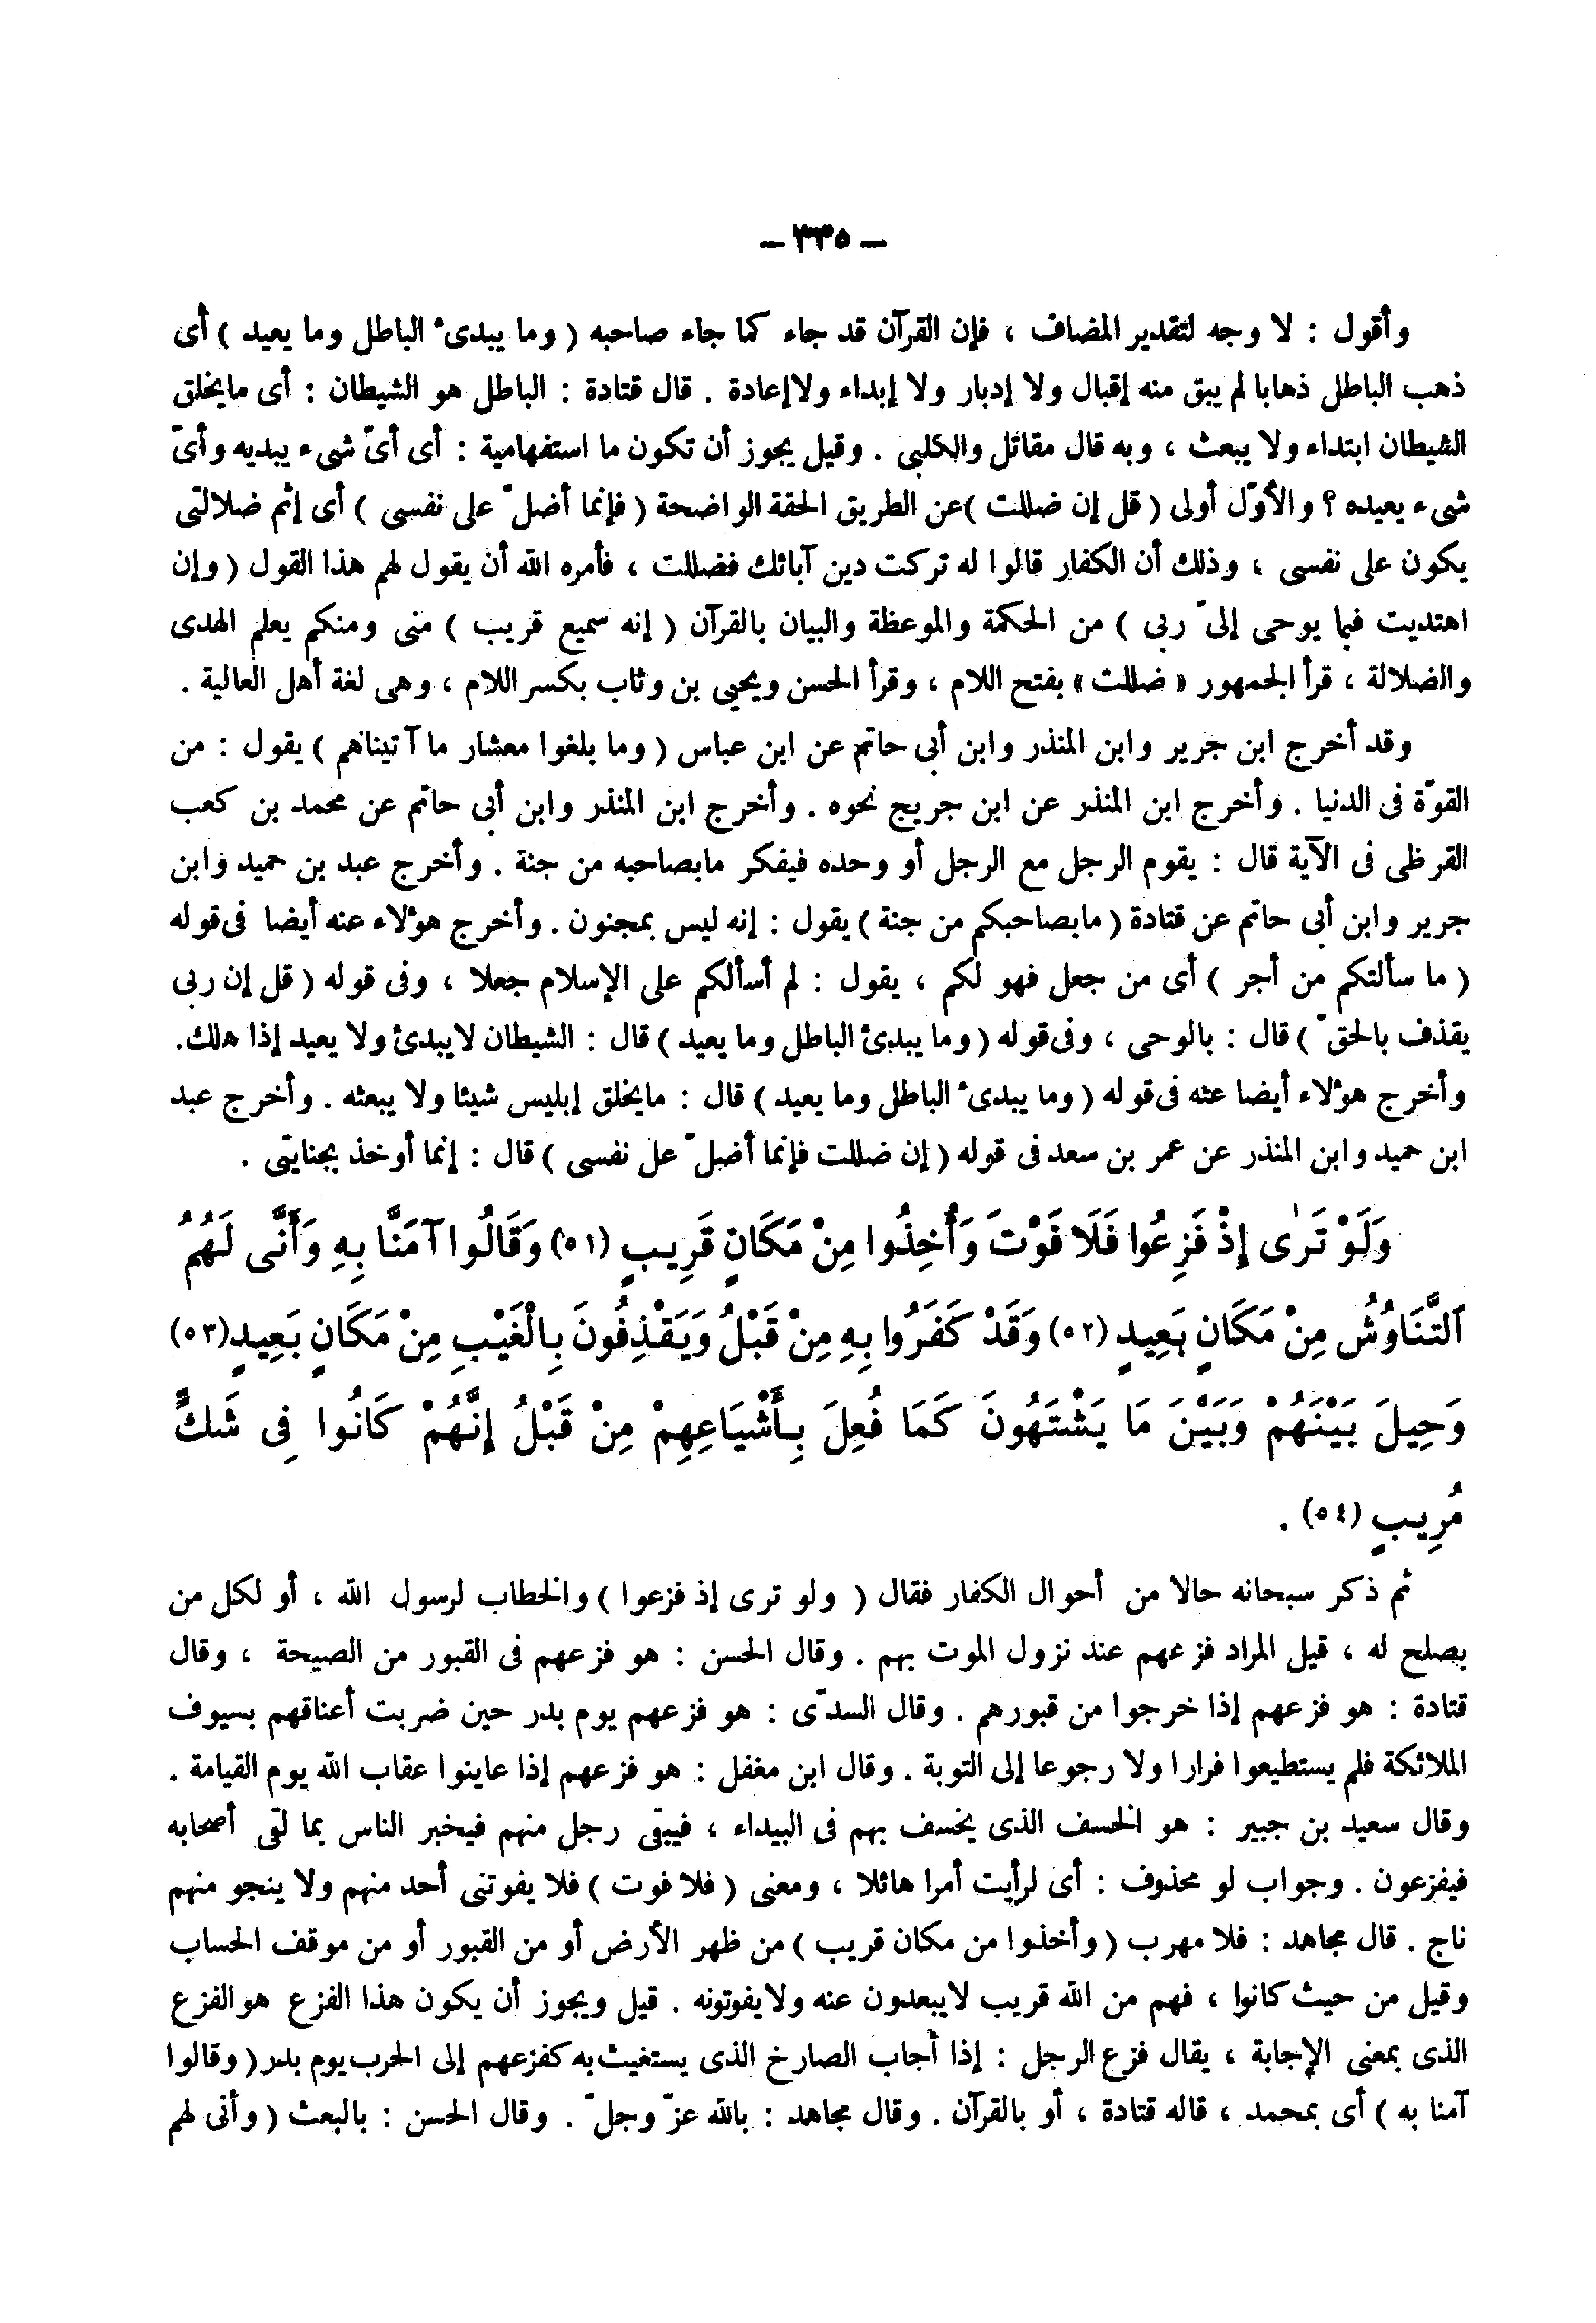 – ٣٣٥ –
وأقول : لا وجه لتقدير المضاف ، فإن القرآن قد جاء كما جاء صاحبه ( وما يبدىء الباطل وما يعيد ) أى
ذهب الباطل ذهابا لم يبق منه إقبال ولا إدبار ولا إبداء ولاإعادة . قال قتادة : الباطل هو الشيطان : أى مايخلق
الشيطان ابتداء ولا يبعث ، وبه قال مقاتل والكلبى . وقيل يجوز أن تكون ما استفهامية : أى أىّ شىء يبديه وأىّ
شىء يعيده ؟ والأوّل أولى ( قل إن ضللت )عن الطريق الحقة الواضحة ( فإنما أضلّ على نفسى ) أى إثم ضلالتى
يكون على نفسى ، وذلك أن الكفار قالوا له تركت دين آبائك فضللت ، فأمره الله أن يقول لهم هذا القول ( وإن
اهتديت فبما يوحى إلىّ ربى ) من الحكمة والموعظة والبيان بالقرآن ( إنه سميع قريب ) منى ومنكم يعلم الهدى
والضلالة ، قرأ الجمهور « ضللت » بفتح اللام ، وقرأ الحسن ويحيى بن وثاب بكسر اللام ، وهى لغة أهل العالية .
وقد أخرج ابن جرير وابن المنذر وابن أبى حاتم عن ابن عباس ( وما بلغوا معشار ما آتيناهم ) يقول : من
القوّة فى الدنيا . وأخرج ابن المنذر عن ابن جريج نحوه . وأخرج ابن المنذر وابن أبى حاتم عن محمد بن كعب
القرظى فى الآية قال : يقوم الرجل مع الرجل أو وحده فيفكر مابصاحبه من جنة . وأخرج عبد بن حميد وابن
جرير وابن أبى حاتم عن قتادة ( مابصاحبكم من جنة ) يقول : إنه ليس بمجنون . وأخرج هؤلاء عنه أيضا فى قوله
( ما سألتكم من أجر ) أى من جعل فهو لكم ، يقول : لم أسألكم على الإسلام جعلا ، وفى قوله ( قل إن ربى
يقذف بالحقّ ) قال : بالوحى ، وفى قوله ( وما يبدئ الباطل وما يعيد ) قال : الشيطان لايبدئ ولا يعيد إذا هلك.
وأخرج هؤلاء أيضا عنه فى قوله ( وما يبدىء الباطل وما يعيد ) قال : مايخلق إبليس شيئا ولا يبعثه . وأخرج عبد
ابن حميد وابن المنذر عن عمر بن سعد فى قوله ( إن ضللت فإنما أضلّ عل نفسى ) قال : إنما أوخذ بجنايتى .
وَلَوْ تَرٰى إِذْ فَزِعُوا فَلَا فَوْتَ وَأُخِذُوا مِنْ مَكَانٍ قَرِيبٍ (٥١) وَقَالُوا آمَنَّا بِهِ وَأَنَّى لَهُمُ
ٱلتَّنَاوُشُ مِنْ مَكَانٍ بَعِيدٍ (٥٢) وَقَدْ كَفَرُوا بِهِ مِنْ قَبْلُ وَيَقْذِفُونَ بِالْغَيْبِ مِنْ مَكَانٍ بَعِيدٍ (٥٣)
وَحِيلَ بَيْنَهُمْ وَبَيْنَ مَا يَشْتَهُونَ كَمَا فُعِلَ بِأَشْيَاعِهِمْ مِنْ قَبْلُ إِنَّهُمْ كَانُوا فِى شَكٍّ
مُرِيبٍ (٥٤) .
ثم ذكر سبحانه حالا من أحوال الكفار فقال ( ولو ترى إذ فزعوا ) والخطاب لرسول الله ، أو لكل من
يصلح له ، قيل المراد فزعهم عند نزول الموت بهم . وقال الحسن : هو فزعهم فى القبور من الصيحة ، وقال
قتادة : هو فزعهم إذا خرجوا من قبورهم . وقال السدّى : هو فزعهم يوم بدر حين ضربت أعناقهم بسيوف
الملائكة فلم يستطيعوا فرارا ولا رجوعا إلى التوبة . وقال ابن مغفل : هو فزعهم إذا عاينوا عقاب الله يوم القيامة .
وقال سعيد بن جبير : هو الخسف الذى يخسف بهم فى البيداء ، فيبقى رجل منهم فيخبر الناس بما لقى أصحابه
فيفزعون . وجواب لو محذوف : أى لرأيت أمرا هائلا ، ومعنى ( فلا فوت ) فلا يفوتنى أحد منهم ولا ينجو منهم
ناج . قال مجاهد : فلا مهرب ( وأخذوا من مكان قريب ) من ظهر الأرض أو من القبور أو من موقف الحساب
وقيل من حيث كانوا ، فهم من الله قريب لايبعدون عنه ولايفوتونه . قيل ويجوز أن يكون هذا الفزع هو الفزع
الذى بمعنى الإجابة ، يقال فزع الرجل : إذا أجاب الصارخ الذى يستغيث به كفزعهم إلى الحرب يوم بدر ( وقالوا
آمنا به ) أى بمحمد ، قاله قتادة ، أو بالقرآن . وقال مجاهد : بالله عزّ وجلّ . وقال الحسن : بالبعث ( وأنى لهم